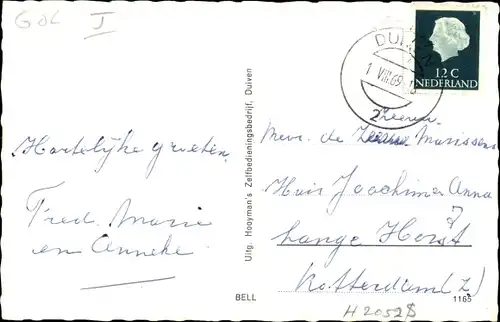 GOL I
DUIVEN
1 VIII.69
12 C
NEDERLAND
Hartelijke groeten,
Fred. Marie
en Anneke
Uitg. Hooyman's Zelfbedieningsbedrijf, Duiven
Mevr. de Marissens
Huis Joachim en Anna
Lange Horst
Rotterdam (Z)
BELL
1165
H 2052$